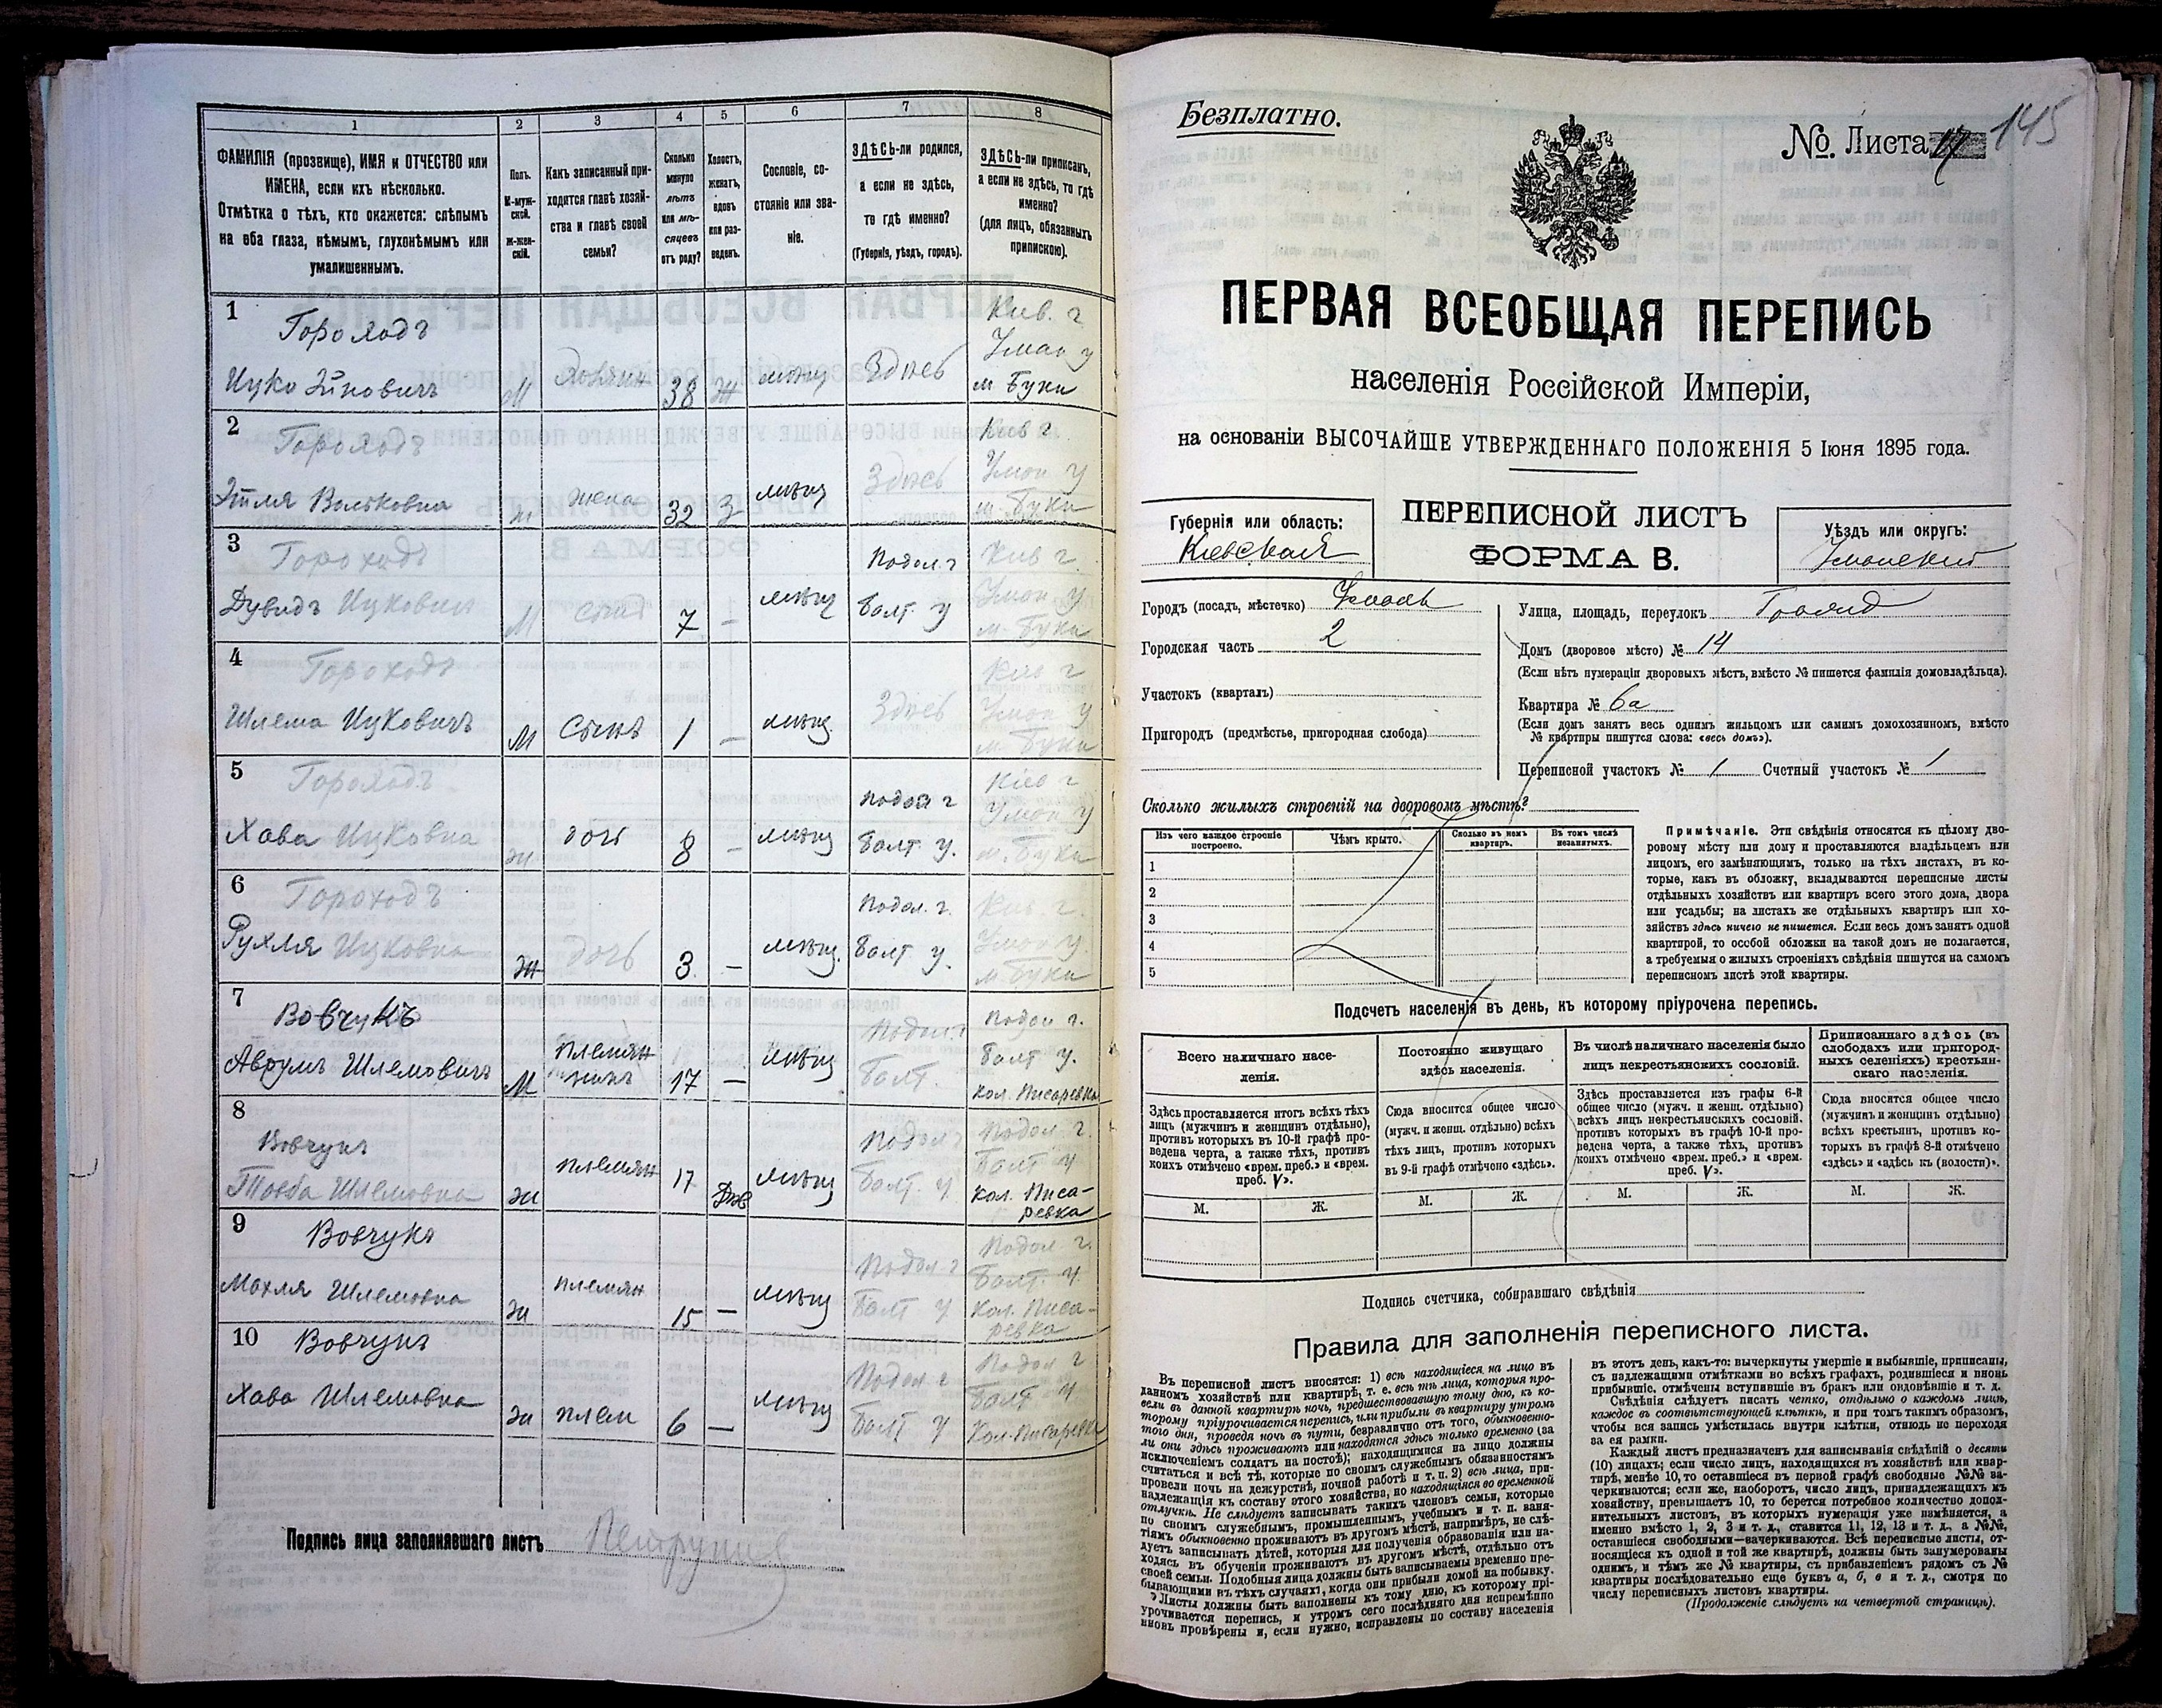 1
2
3
4
5
6
7
8
ФАМИЛІЯ (прозвище), ИМЯ и ОТЧЕСТВО или
ИМЕНА, если ихъ нѣсколько.
Отмѣтка о тѣхъ, кто окажется: слѣпымъ
на оба глаза, нѣмымъ, глухонѣмымъ или
умалишеннымъ.
Полъ.
М-муж-
ской.
Ж-жен-
скій.
Какъ записанный при-
ходится главѣ хозяй-
ства и главѣ своей
семьи?
Сколько
минуло
лѣтъ
или мѣ-
сяцевъ
отъ роду?
Холостъ,
женатъ,
вдовъ
или раз-
веденъ.
Сословіе, со-
стояніе или зва-
ніе.
ЗДѢСЬ-ли родился,
а если не здѣсь,
то гдѣ именно?
(Губернія, уѣздъ, городъ).
ЗДѢСЬ-ли приписанъ,
а если не здѣсь, то гдѣ
именно?
(для лицъ, обязанныхъ
припискою).
1
Гороходъ
Кив. г
Уман у
Ицко
М
38
Ж
мѣщ
Здѣсь
м Буки
2
Гороходъ
Кив г
Уман у
Этля Вольковна
жена
32
З
мѣщ
Здѣсь
м. Буки
3
Гороходъ
Подол. г
Кив г.
Уман у
Дувидъ Ицкович
М
сынъ
7
–
мѣщ
Балт у
м. Буки
4
Гороходъ
Кив г
Уман у
Шлема Ицковичъ
М
сынъ
1
–
мѣщ.
Здѣсь
м Буки
5
Гороходъ
Подол г
Кив г
Уман у
Хава Ицковна
ж
дочь
8
–
мѣщ
Балт у.
м. Буки
6
Гороходъ
Подол. г.
Кив г.
Уман у.
Рухля Ицковна
ж
дочь
3
–
мѣщ.
Балт у.
м. Буки
7
Вовчукъ
Подол. г
Подол г.
Балт у.
Аврумъ Шлемовичъ
М
племян
никъ
17
–
мѣщ
Балт.
кол. Писаревка
8
Вовчукъ
Подол г
Подол. г.
Балт у
Товба Шлемовна
ж
племян
17
Дѣв
мѣщ
Балт. у
кол. Писа-
ревка
9
Вовчукъ
Подол г
Подол г.
Балт. у.
Махля Шлемовна
ж
племян
15
–
мѣщ
Балт у
кол. Писа-
ревка
10
Вовчукъ
Подол г
Подол г
Балт у
Хава Шлемовна
ж
плем
6
–
мѣщ
Балт у
кол. Писаревка
Подпись лица заполнявшаго листъ
Безплатно.
№. Листа
145
ПЕРВАЯ ВСЕОБЩАЯ ПЕРЕПИСЬ
населенія Россійской Имперіи,
на основаніи ВЫСОЧАЙШЕ УТВЕРЖДЕННАГО ПОЛОЖЕНІЯ 5 Іюня 1895 года.
Губернія или область:
Кіевская
ПЕРЕПИСНОЙ ЛИСТЪ
ФОРМА В.
Уѣздъ или округъ:
Уманский
Городъ (посадъ, мѣстечко) Умань
Городская часть 2
Участокъ (кварталъ)
Пригородъ (предмѣстье, пригородная слобода)
Улица, площадь, переулокъ
Домъ (дворовое мѣсто) № 14
(Если нѣтъ нумераціи дворовыхъ мѣстъ, вмѣсто № пишется фамилія домовладѣльца).
Квартира № 6а
(Если домъ занятъ весь однимъ жильцомъ или самимъ домохозяиномъ, вмѣсто
№ квартиры пишутся слова: «весь домъ»).
Переписной участокъ № 1 Счетный участокъ № 1
Сколько жилыхъ строеній на дворовомъ мѣстѣ?
Изъ чего каждое строеніе
построено.
Чѣмъ крыто.
Сколько въ немъ
квартиръ.
Въ томъ числѣ
незанятыхъ.
1
2
3
4
5
Примѣчаніе. Эти свѣдѣнія относятся къ цѣлому дво-
ровому мѣсту или дому и проставляются владѣльцемъ или
лицомъ, его замѣняющимъ, только на тѣхъ листахъ, въ ко-
торые, какъ въ обложку, вкладываются переписные листы
отдѣльныхъ хозяйствъ или квартиръ всего этого дома, двора
или усадьбы; на листахъ же отдѣльныхъ квартиръ или хо-
зяйствъ здѣсь ничего не пишется. Если весь домъ занятъ одной
квартирой, то особой обложки на такой домъ не полагается,
а требуемыя о жилыхъ строеніяхъ свѣдѣнія пишутся на самомъ
переписномъ листѣ этой квартиры.
Подсчетъ населенія въ день, къ которому пріурочена перепись.
Всего наличнаго насе-
ленія.
Постоянно живущаго
здѣсь населенія.
Въ числѣ наличнаго населенія было
лицъ некрестьянскихъ сословій.
Приписаннаго здѣсь (въ
слободахъ или пригород-
ныхъ селеніяхъ) крестьян-
скаго населенія.
Здѣсь проставляется итогъ всѣхъ тѣхъ
лицъ (мужчинъ и женщинъ отдѣльно),
противъ которыхъ въ 10-й графѣ про-
ведена черта, а также тѣхъ, противъ
коихъ отмѣчено «врем. преб.» и «врем.
преб. V».
Сюда вносится общее число
(мужч. и женщ. отдѣльно) всѣхъ
тѣхъ лицъ, противъ которыхъ
въ 9-й графѣ отмѣчено «здѣсь».
Здѣсь проставляется изъ графы 6-й
общее число (мужч. и женщ. отдѣльно)
всѣхъ лицъ некрестьянскихъ сословій.
противъ которыхъ въ графѣ 10-й про-
ведена черта, а также тѣхъ, противъ
коихъ отмѣчено «врем. преб.» и «врем.
преб. V».
Сюда вносится общее число
(мужчинъ и женщинъ отдѣльно)
всѣхъ крестьянъ, противъ ко-
торыхъ въ графѣ 8-й отмѣчено
«здѣсь» и «здѣсь къ (волости)».
М.
Ж.
М.
Ж.
М.
Ж.
М.
Ж.
Подпись счетчика, собиравшаго свѣдѣнія
Правила для заполненія переписного листа.
Въ переписной листъ вносятся: 1) всѣ находящіеся на лицо въ
данномъ хозяйствѣ или квартирѣ, т. е. всѣ тѣ лица, которыя про-
вели въ данной квартирѣ ночь, предшествовавшую тому дню, къ ко-
торому пріурочивается перепись, или прибыли въ квартиру утромъ
того дня, проведя ночь въ пути, безразлично отъ того, обыкновенно-
ли они здѣсь проживаютъ или находятся здѣсь только временно (за
исключеніемъ солдатъ на постоѣ); находящимися на лицо должны
считаться и всѣ тѣ, которые по своимъ служебнымъ обязанностямъ
провели ночь на дежурствѣ, ночной работѣ и т. п. 2) всѣ лица, при-
надлежащія къ составу этого хозяйства, но находящіяся во временной
отлучкѣ. Не слѣдуетъ записывать такихъ членовъ семьи, которые
по своимъ служебнымъ, промышленнымъ, учебнымъ и т. п. заня-
тіямъ обыкновенно проживаютъ въ другомъ мѣстѣ, напримѣръ, не слѣ-
дуетъ записывать дѣтей, которыя для полученія образованія или на-
ходясь въ обученіи проживаютъ въ другомъ мѣстѣ, отдѣльно отъ
своей семьи. Подобныя лица должны быть записываемы временно пре-
бывающими въ тѣхъ случаяхъ, когда они прибыли домой на побывку.
Листы должны быть заполнены къ тому дню, къ которому прі-
урочивается перепись, и утромъ сего послѣдняго дня непремѣнно
вновь провѣрены и, если нужно, исправлены по составу населенія
въ этотъ день, какъ-то: вычеркнуты умершіе и выбывшіе, приписаны,
съ надлежащими отмѣтками во всѣхъ графахъ, родившіеся и вновь
прибывшіе, отмѣчены вступившіе въ бракъ или овдовѣвшіе и т. д.
Свѣдѣнія слѣдуетъ писать четко, отдѣльно о каждомъ лицѣ,
каждое въ соотвѣтствующей клѣткѣ, и при томъ такимъ образомъ,
чтобы вся запись умѣстилась внутри клѣтки, отнюдь не переходя
за ея рамки.
Каждый листъ предназначенъ для записыванія свѣдѣній о десяти
(10) лицахъ; если число лицъ, находящихся въ хозяйствѣ или квар-
тирѣ, менѣе 10, то оставшіеся въ первой графѣ свободные №№ за-
черкиваются; если же, наоборотъ, число лицъ, принадлежащихъ къ
хозяйству, превышаетъ 10, то берется потребное количество допол-
нительныхъ листовъ, въ которыхъ нумерація уже измѣняется, а
именно вмѣсто 1, 2, 3 и т. д., ставится 11, 12, 13 и т. д., а №№,
оставшіеся свободными—вачеркиваются. Всѣ переписные листы, от-
носящіеся къ одной и той же квартирѣ, должны быть занумерованы
однимъ, и тѣмъ же № квартиры, съ прибавленіемъ рядомъ съ №
квартиры послѣдовательно еще буквъ а, б, в и т. д., смотря по
числу переписныхъ листовъ квартиры.
(Продолженіе слѣдуетъ на четвертой страницѣ).